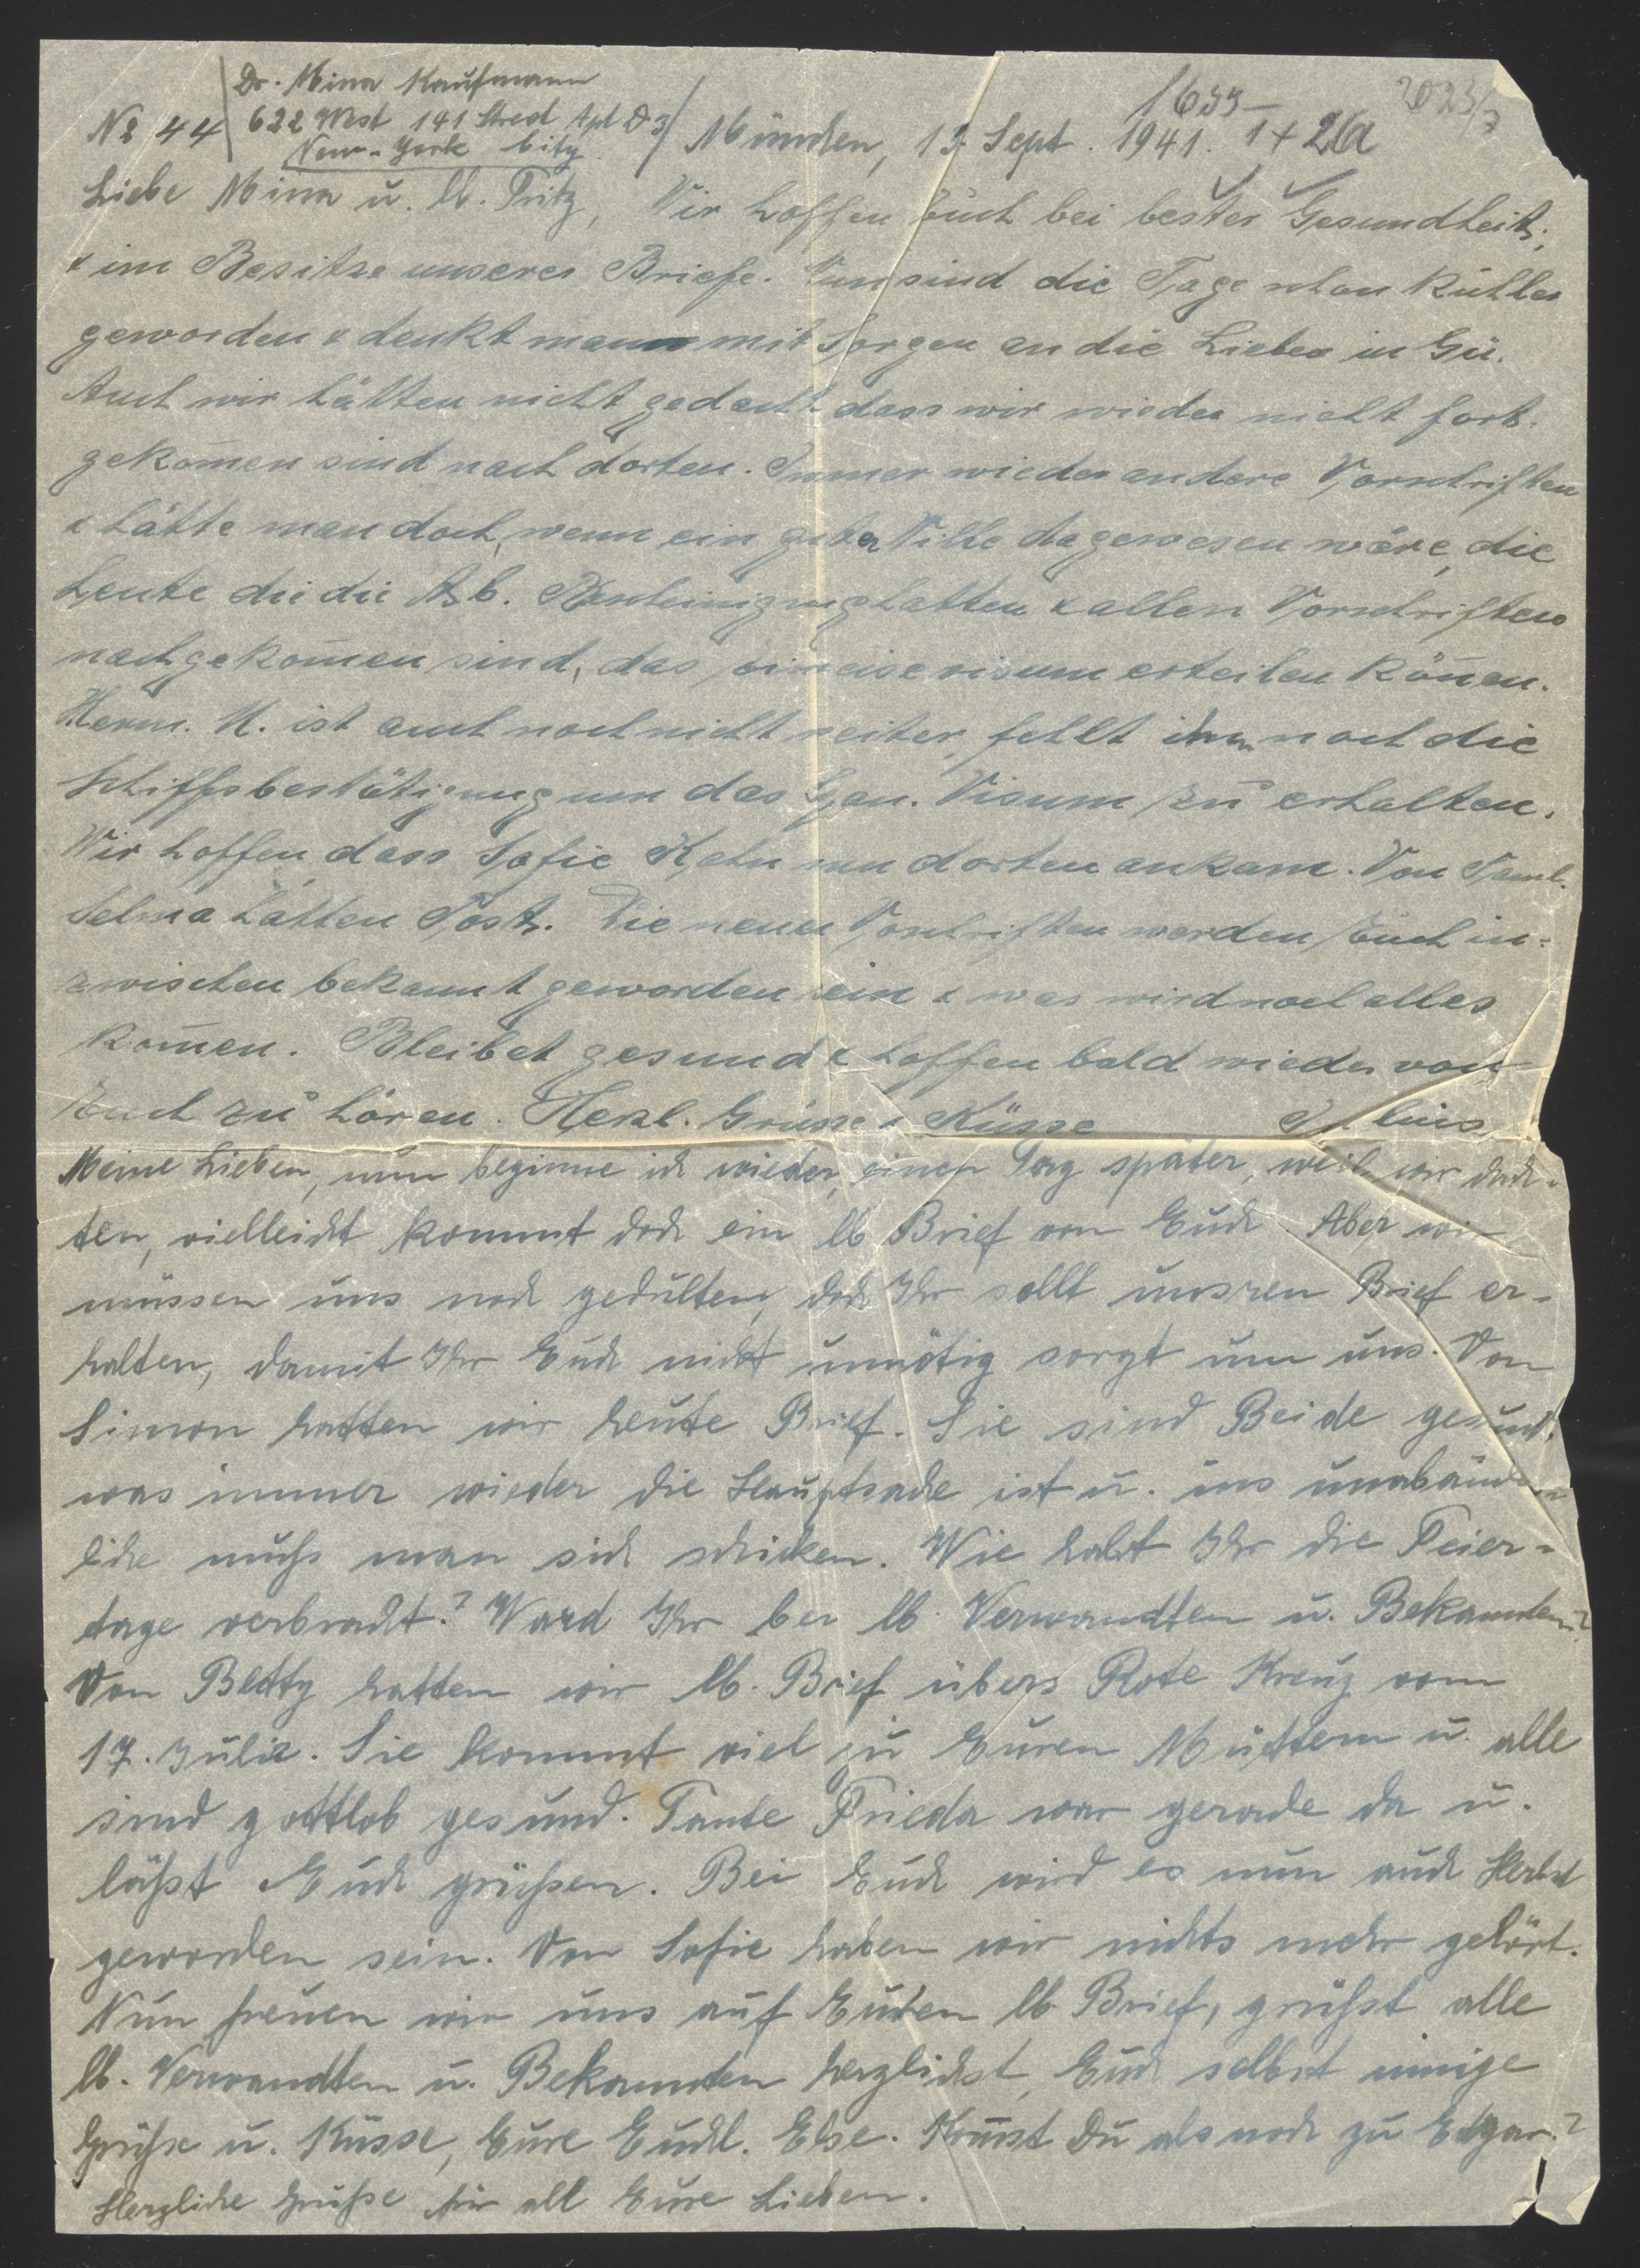 Dr. Mina Kaufmann
622 West 141 Street Apt D 3
New-York City
1655 2023/7
No 44 München, 13. Sept. 1941. 1+2a
Liebe Mina u. lb. Fritz, Wir hoffen Euch bei bester Gesundheit,
& im Besitze unserer Briefe. Nun sind die Tage schon kühler
geworden & denkt man mit Sorgen an die Lieben in Gü.
Auch wir hätten nicht gedacht dass wir wieder nicht fort-
gekom̅en sind nach dorten. Immer wieder andere Vorschriften
& hätte man doch, wenn ein guter Wille dagewesen wäre, die
Leute die die Bescheinigung hatten & allen Vorschriften
nachgekom̅en sind, das Einreisevisum erteilen kön̅en.
Herm. M. ist auch noch nicht weiter, fehlt ihm noch die
Schiffsbestätigung um das Span. Visum zu erhalten.
Wir hoffen dass Sofie Kahn nun dorten ankam. Von Faml.
Selma hätten Post. Die neuen Vorschriften werden Euch in-
zwischen bekannt geworden sein & was wird noch alles
kom̅en. Bleibet gesund & hoffen bald wieder von
Euch zu hören. Herzl. Grüsse & Küsse Julius
Meine Lieben, nun beginne ich wieder, einen Tag später, weil wir dach-
ten, vielleicht kommt doch ein lb Brief von Euch. Aber wir
müssen uns noch gedulten, doch Ihr sollt unsren Brief er-
halten, damit Ihr Euch nicht unnötig sorgt um uns. Von
Simon hatten wir heute Brief. Sie sind Beide gesund,
was immer wieder die Hauptsache ist u. ins unabänder-
liche muss man sich schicken. Wie habt Ihr die Feier-
tage verbracht? Ward Ihr bei lb. Verwandten u. Bekannten?
Von Betty hatten wir lb. Brief übers Rote Kreuz vom
17. Juli. Sie kommt viel zu Euren Müttern u. alle
sind gottlob gesund. Tante Frieda war gerade da u.
läßt Euch grüßen. Bei Euch wird es nun auch Herbst
geworden sein. Von Sofie haben wir nichts mehr gehört.
Nun freuen wir uns auf Euren lb Brief, grüßt alle
lb. Verwandten u. Bekannten herzlichst, Euch selbst innige
Grüße u. Küsse, Eure Euchl. Else. Kom̅st Du als noch zu Edgar?
Herzliche Grüße für all Eure Lieben.